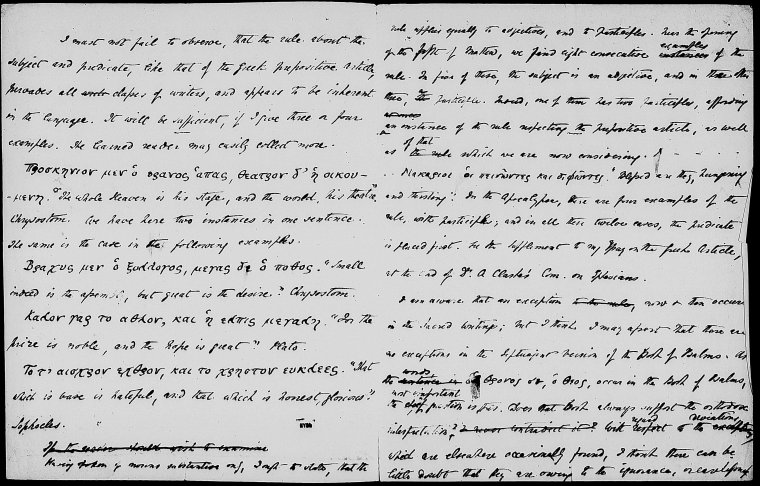 I must not fail to observe, that the rule about the
subject and predicate, like that of the Greek prepositive article,
pervades all classes of writers, and appears to be inherent
in the language. It will be sufficient, if I give three or four
examples. The learned reader may easily collect more.
Προσκηνιον μεν ὁ ουρανος ἁπας, θεατρον δ' ἡ οικου-
-μενη. "The whole Heaven is his stage, and the world, his theatre."
Chrysostom. We have here two instances in one sentence.
The same is the case in the following examples.
Βραχυς μεν ὁ ξυλλογος, μεγας δε ὁ ποθος. "Small
indeed is the, but great is the desire." Chrysostom.
Καλον γαρ το αθλον, και ἡ ελπις μεγαλη. "For the
prize is noble, and the hope is great." Plato.
Το τ' αισχρον εχθρον, και το χρηστον ευκλεες. "That
which is base is hateful, and that which is honest, glorious."
Sophocles.
If the reader should wish to examine
Having spoken of nouns substantive only, I wish to state, that the
rule applies equally to adjectives, and to Participles. Near the opening
of the Gospel of Matthew, we find eight consecutive instances examples of the
rule. In five of these, the subject is an adjective, and in the other
three, the participle. Indeed, one of them has two Participles, affording
an instance of the rule respecting the prepositive article, as well
as of that the rule which we are now considering.
Μακαριοι ὁι πεινωντες και διψωντες "Blessed are they, hungering
and thirsting". In the Apocalypse, there are four examples of the
rule, with participles; and in all these twelve cases, the predicate
is placed first. See the Supplement to my Essay on the Greek Article,
at the end of Dr. A. Clarke's Com. on Ephesians.
I am aware that an exception to the rule, now & then occurs
in the Sacred writings; but I think I may assert that there are
no exceptions in the Septuagint Version of the Book of Psalms. As
the words θρονος σου, ὁ Θεος, occur in the Book of Psalms,
the not important question is this. Does that Book always support the orthodox
interpretation? With regard respect to the deviations
which are elsewhere occasionally found, I think there can be
little doubt that they are owing to the ignorance, or carelessness